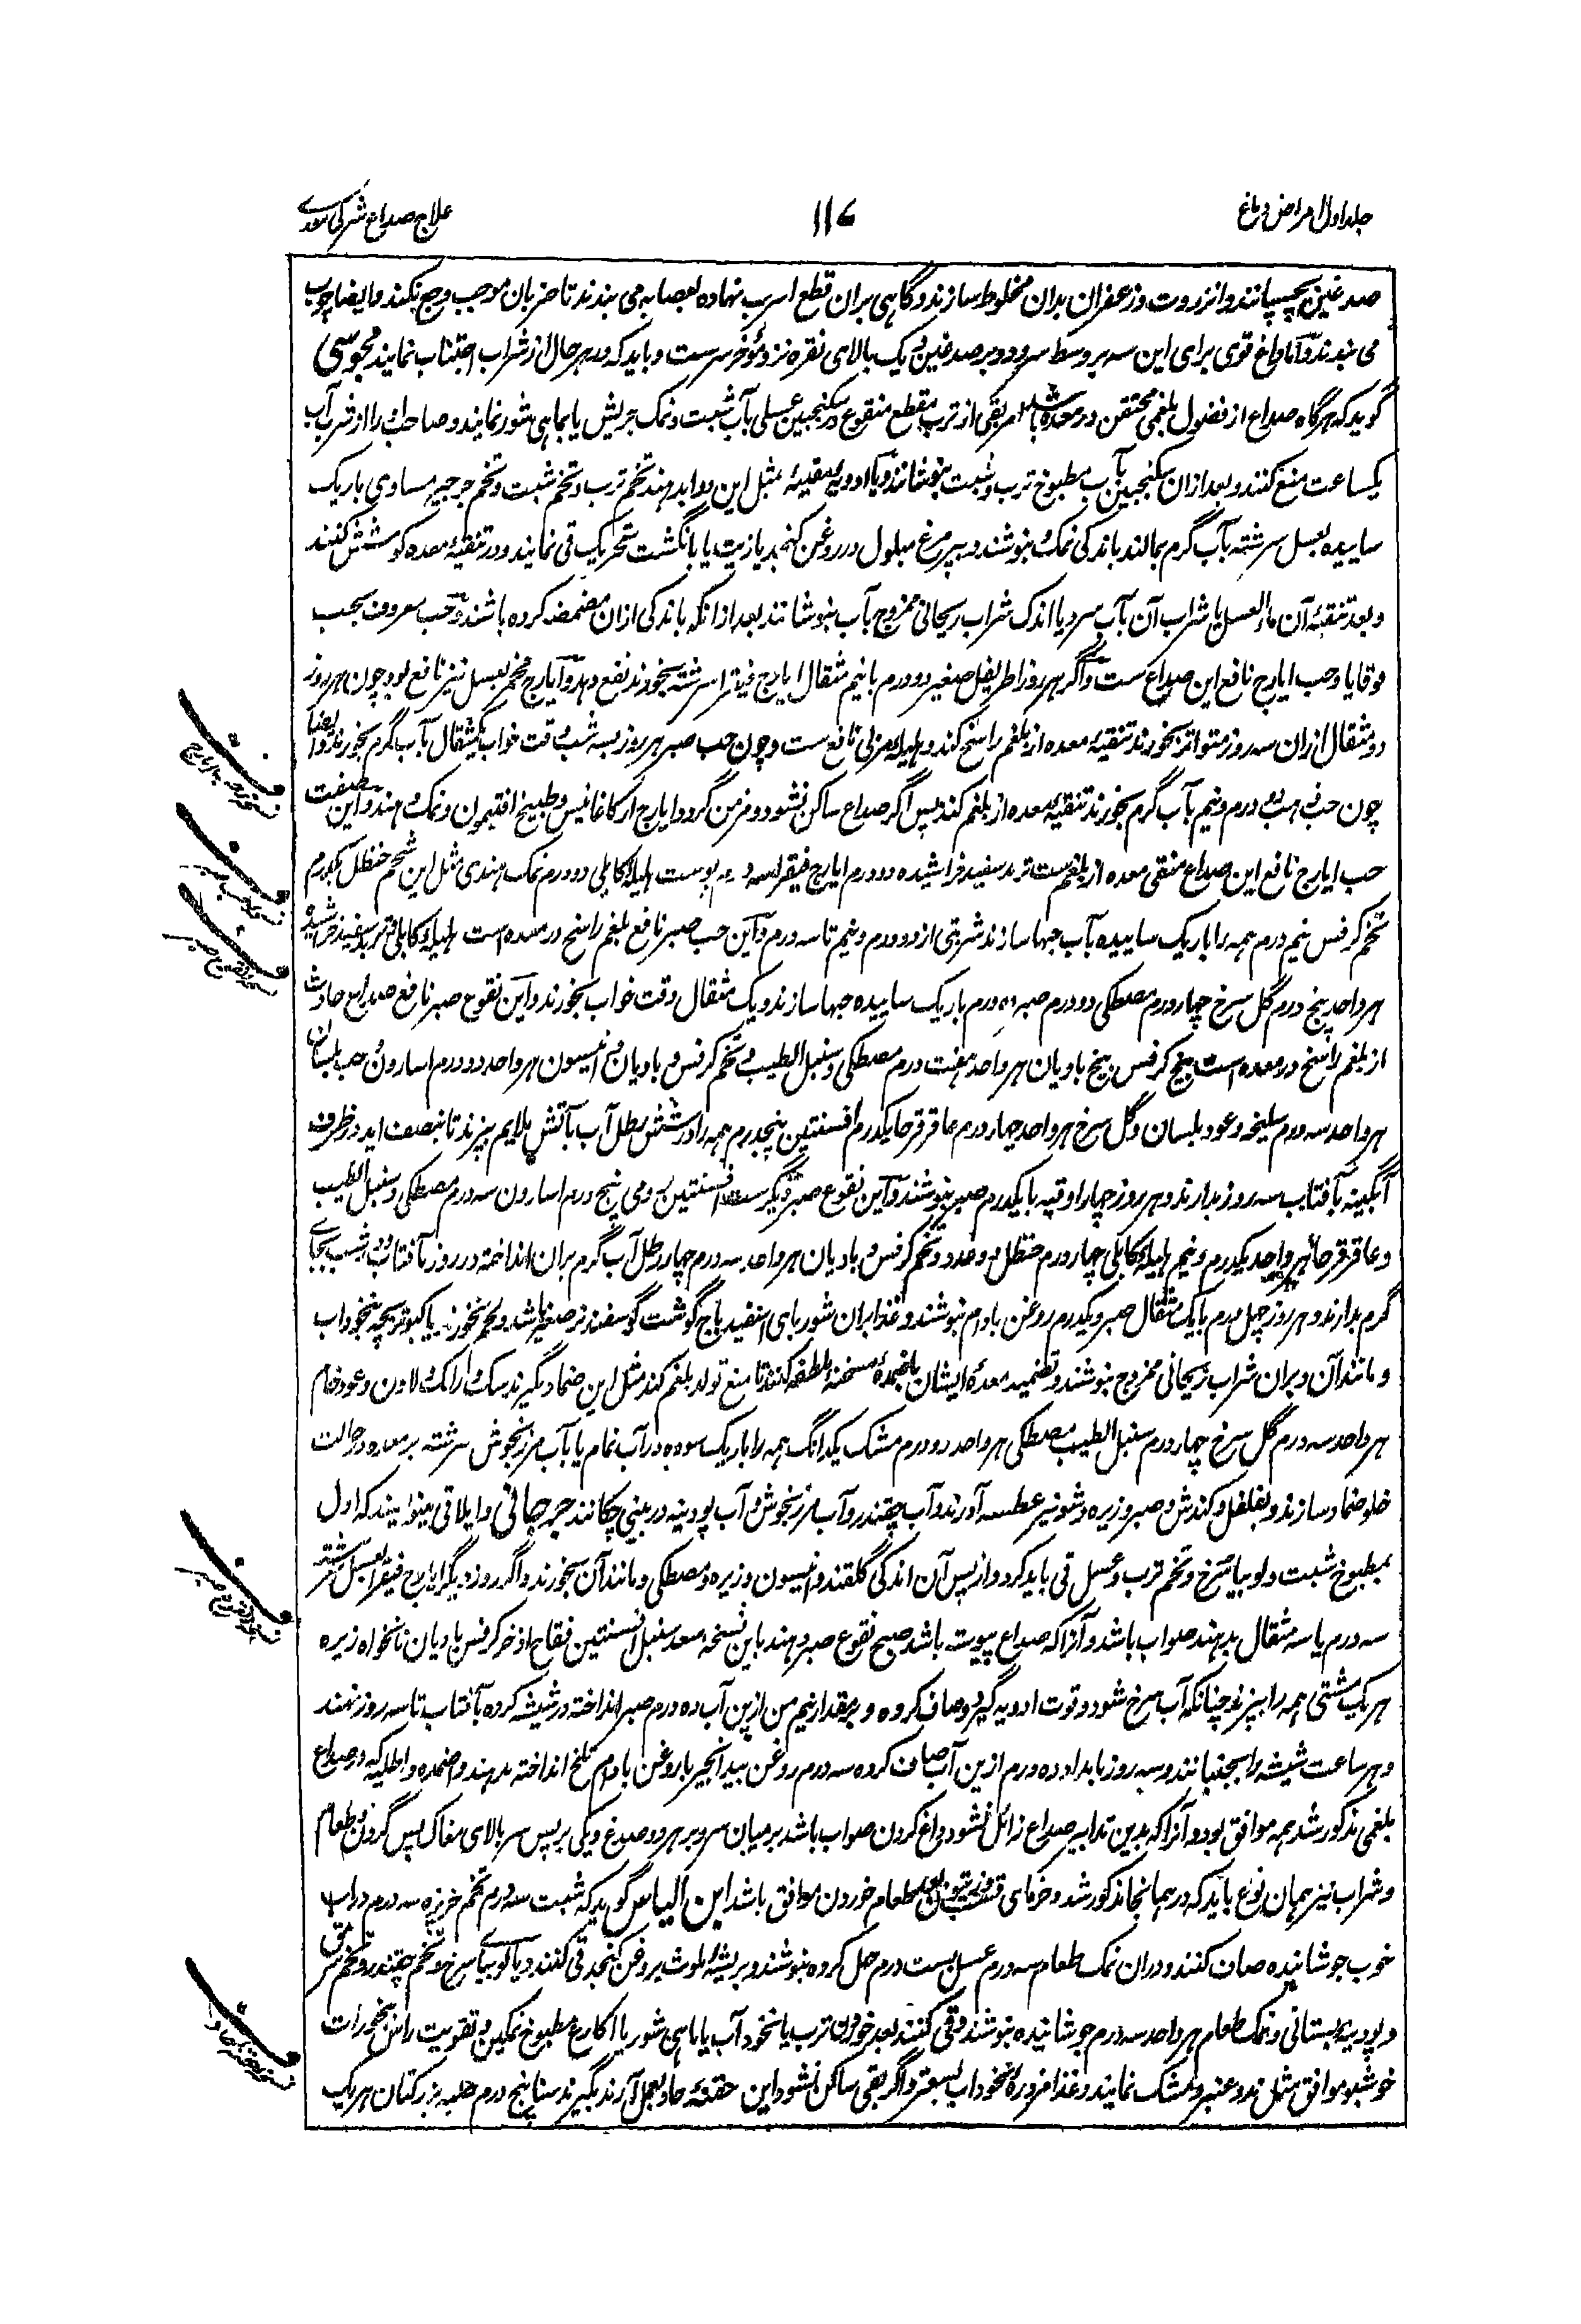 جلد اول امراض دماغ
۱۱۷
علاج صداع شرکی معدی
صدغین بچسپانند و انزروت و زعفران بدان مخلوط سازند و گاهی بران قطع اسرب نهاده بعصابه می بندند تا ضربان موجب وجع نکند و ایضا چوب
می بندند و اما داغ قوی برای این سه بر وسط سر و دو بر صدغین و یک بالای نقره نزد مؤخر سرست و باید که در هر حال از شراب اجتناب نمایند مجوسی
گوید که هرگاه صداع از فضول بلغمی محتقن در معده باشد امر بقی از ترب مقطع منقوع در سکنجبین عسلی بآب شبت و نمک جریش یا بماهی شور نمایند و صاحبش را از شرب آب
یکساعت منع کنند و بعد ازان سکنجبین بآب مطبوخ ترب و شبت بنوشانند و یا ادویه مقیئه مثل این دوا بدهند تخم ترب و تخم شبت و تخم جرجیر مساوی باریک
ساییده بعسل سرشته بآب گرم بمالند باندکی نمک بنوشند و بپر مرغ مبلول در روغن کنجد یا زیت یا بانگشت تحریک قی نمایند و در تنقیه معده کوشش کنند
و بعد تنقیه آن ماء العسل یا شراب آن بآب سرد یا اندک شراب ریحانی ممزوج بآب بنوشانند بعد از انکه باندکی ازان مضمضه کرده باشند و حب معروف بحب
قوقایا و حب ایارج نافع این صداع ست و اگر هر روز اطریفل صغیر دو درم با نیم مثقال ایارج فیقرا سرشته بخورند نفع دهد و ایارج مخمر بعسل نیز نافع بود چون هر روز
دو مثقال ازان سه روز متواتر بخورند تنقیه معده از بلغم راسخ کند و هلیله مربی نافع ست و چون حب صبر هر روز بسه شب وقت خواب یکمثقال بآب گرم بخورند و ایضا
چون حب ذهب دو درم و نیم بآب گرم بخورند تنقیه معده از بلغم کند پس اگر صداع ساکن نشود و مزمن گردد ایارج ارکاغانیس و طبیخ افتیمون و نمک دهند و این صفت
حب ایارج نافع این صداع منقی معده از بلغم ست تربد سفید خراشیده دو درم ایارج فیقرا سه درم پوست هلیله کابلی دو درم نمک هندی مثل این شحم حنظل یکدرم
تخم کرفس نیم درم همه را باریک ساییده بآب حبها سازند شربتی از دو درم و نیم تا سه درم و این حب صبر نافع بلغم راسخ در معده است هلیله کابلی تربد سفید خراشیده
هر واحد پنج درم گل سرخ چهار درم مصطکی دو درم صبر ده درم باریک ساییده حبها سازند و یک مثقال وقت خواب بخورند و این نقوع صبر نافع صداع حادث
از بلغم راسخ در معده است بیخ کرفس بیخ بادیان هر واحد هفت درم مصطکی و سنبل الطیب و تخم کرفس و بادیان و انیسون هر واحد دو درم اسارون و حب بلسان
هر واحد سه درم سلیخه و عود بلسان و گل سرخ هر واحد چهار درم عاقرقرحا یکدرم افسنتین پنجدرم همه را در شش رطل آب بآتش ملایم بپزند تا بنصف آید در ظرف
آبگینه بآفتاب سه روز بدارند و هر روز چهار اوقیه با یکدرم صبر بنوشند و این نقوع صبر دیگرست افسنتین رومی پنج درم اسارون سه درم مصطکی و سنبل الطیب
و عاقرقرحا هر واحد یکدرم و نیم هلیله کابلی چهار درم حنظل دو عدد و تخم کرفس و بادیان هر واحد سه درم چهار رطل آب گرم بران انداخته در روز بآفتاب و در شب بجای
گرم بدارند و هر روز چهل درم با یک مثقال صبر و یکدرم روغن بادام بنوشند و غذا بران شوربای اسفیدباج گوشت گوسفند نر صغیر باشد و لحم نخورند یا کبوتر بچه بنخوداب
و مانند آن و بران شراب ریحانی ممزوج بنوشند و تضمید معده ایشان باضمده مسخنه ملطفه کنند تا منع تولد بلغم کند مثل این ضماد بگیرند سک و رامک و لادن و عود خام
هر واحد سه درم گل سرخ چهار درم سنبل الطیب مصطکی هر واحد دو درم مشک یکدانگ همه را باریک سوده در آب نمام یا بآب مرزنجوش سرشته بر معده در حالت
خلو ضماد سازند و بفلفل و کندش و صبر و زیره و شونیز عطسه آورند و آب چقندر و آب مرزنجوش و آب پودینه در بینی چکانند جرجانی و ایلاقی مینویسند که اول
بمطبوخ شبت و لوبیا سرخ و تخم ترب و عسل قی باید کرد و از پس آن اندکی گلقند و انیسون و زیره و مصطکی و مانند آن بخورند و اگر روز دیگر ایارج فیقرا بعسل سرشته
سه درم یا سه مثقال بدهند صواب باشد و آنرا که صداع پیوسته باشد صبح نقوع صبر دهند باین نسخه سعد سنبل افسنتین فقاح اذخر کرفس بادیان نانخواه زیره
هر یک مشتی همه را بپزند چنانکه آب سرخ شود و قوت ادویه گیرد و صاف کرده و بمقدار نیم من ازین آب ده درم صبر انداخته در شیشه کرده بآفتاب تا سه روز نهند
و هر ساعت شیشه را بجنبانند و سه روز بامداد ده درم ازین آب صاف کرده سه درم روغن بیدانجیر یا روغن بادام تلخ انداخته بدهند و اضمده و اطلیه که در صداع
بلغمی مذکور شد همه موافق بود و آنرا که بدین تدابیر صداع زائل نشود داغ کردن صواب باشد بر میان سر و بر هر دو صدغ و یکی بر پس سر بالای مغاک پس گردن و طعام
و شراب نیز همان نوع باید که در همانجا مذکور شد و خرمای قسب و زیتون بعد طعام خوردن موافق باشد ابن الیاس گوید که شبت سه درم تخم خرپزه سه درم در آب
خوب جوشانیده صاف کنند و دران نمک طعام سه درم عسل بیست درم حل کرده بنوشند و بریشه ملوث بروغن کنجد قی کنند و یا لوبیای سرخ و تخم چقندر و تخم سرمق
و پودینه بستانی و نمک طعام هر واحد سه درم جوشانیده بنوشند و قی کنند بعد خوردن ترب یا نخود آب یا ماهی شور یا اکارع مطبوخ نمکین و تقویت راس ببخورات
خوشبو موافق مثل ند و عنبر و مشک نمایند و غذا مزوره نخوداب بسعتر و اگر بقی ساکن نشود این حقنه حاد بعمل آرند بگیرند سنا پنج درم حلبه بزر کتان هر یک
نسخه حب ایارج
نسخه حب صبر
نسخه نقوع صبر
نسخه نقوع صبر
نسخه حقنه حاد